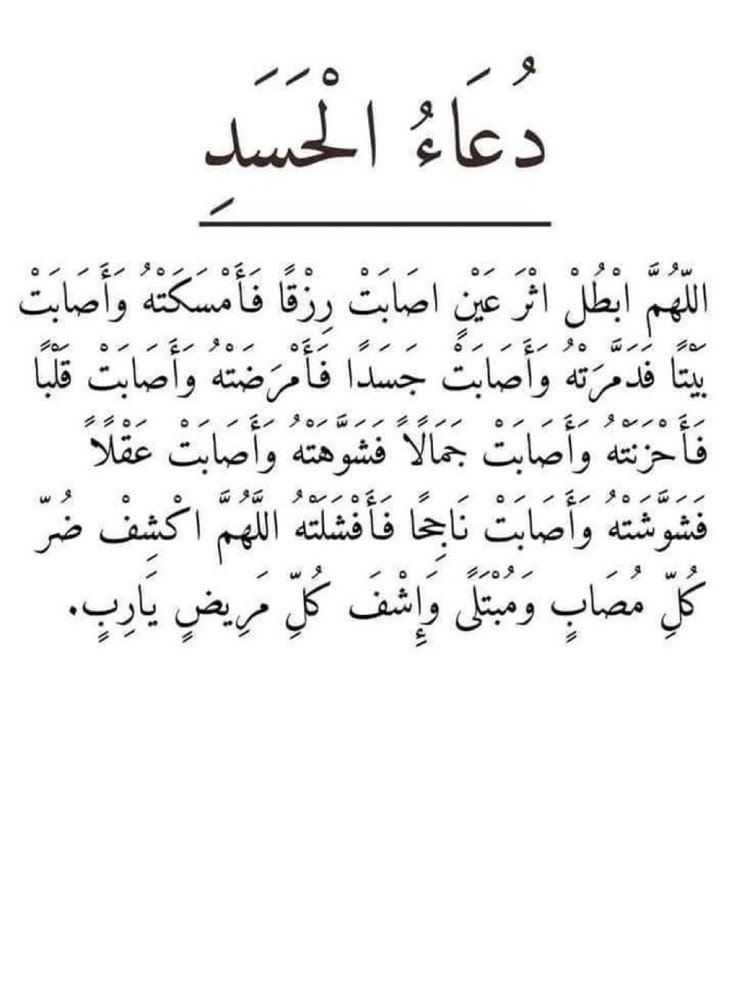 دُعَاءُ الْحَسَدِ
اللّهُمَّ ابْطُلْ اثْرَ عَيْنٍ اصَابَتْ رِزْقًا فَأَمْسَكَتْهُ وَأَصَابَتْ
بَيْتًا فَدَمَّرَتْهُ وَأَصَابَتْ جَسَدًا فَأَمْرَضَتْهُ وَأَصَابَتْ قَلْبًا
فَأَحْزَنَتْهُ وَأَصَابَتْ جَمَالًا فَشَوَّهَتْهُ وَأَصَابَتْ عَقْلًا
فَشَوَّشَتْهُ وَأَصَابَتْ نَاجِحًا فَأَفْشَلَتْهُ اللَّهُمَّ اكْشِفْ ضُرّ
كُلِّ مُصَابٍ وَمُبْتَلًى وَإِشْفَ كُلِّ مَرِيضٍ يَارِبٍ.